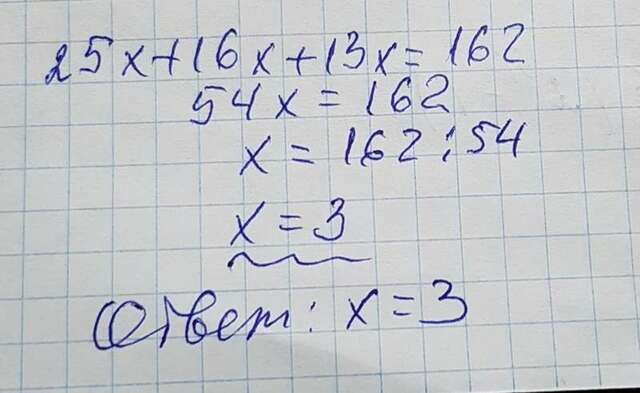 25x+16x+13x=162
54x=162
x=162:54
x=3
Ответ: x=3